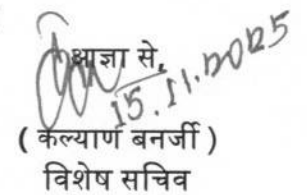 आज्ञा से,
15.11.2025
( कल्यार्ण बनर्जी )
विशेष सचिव